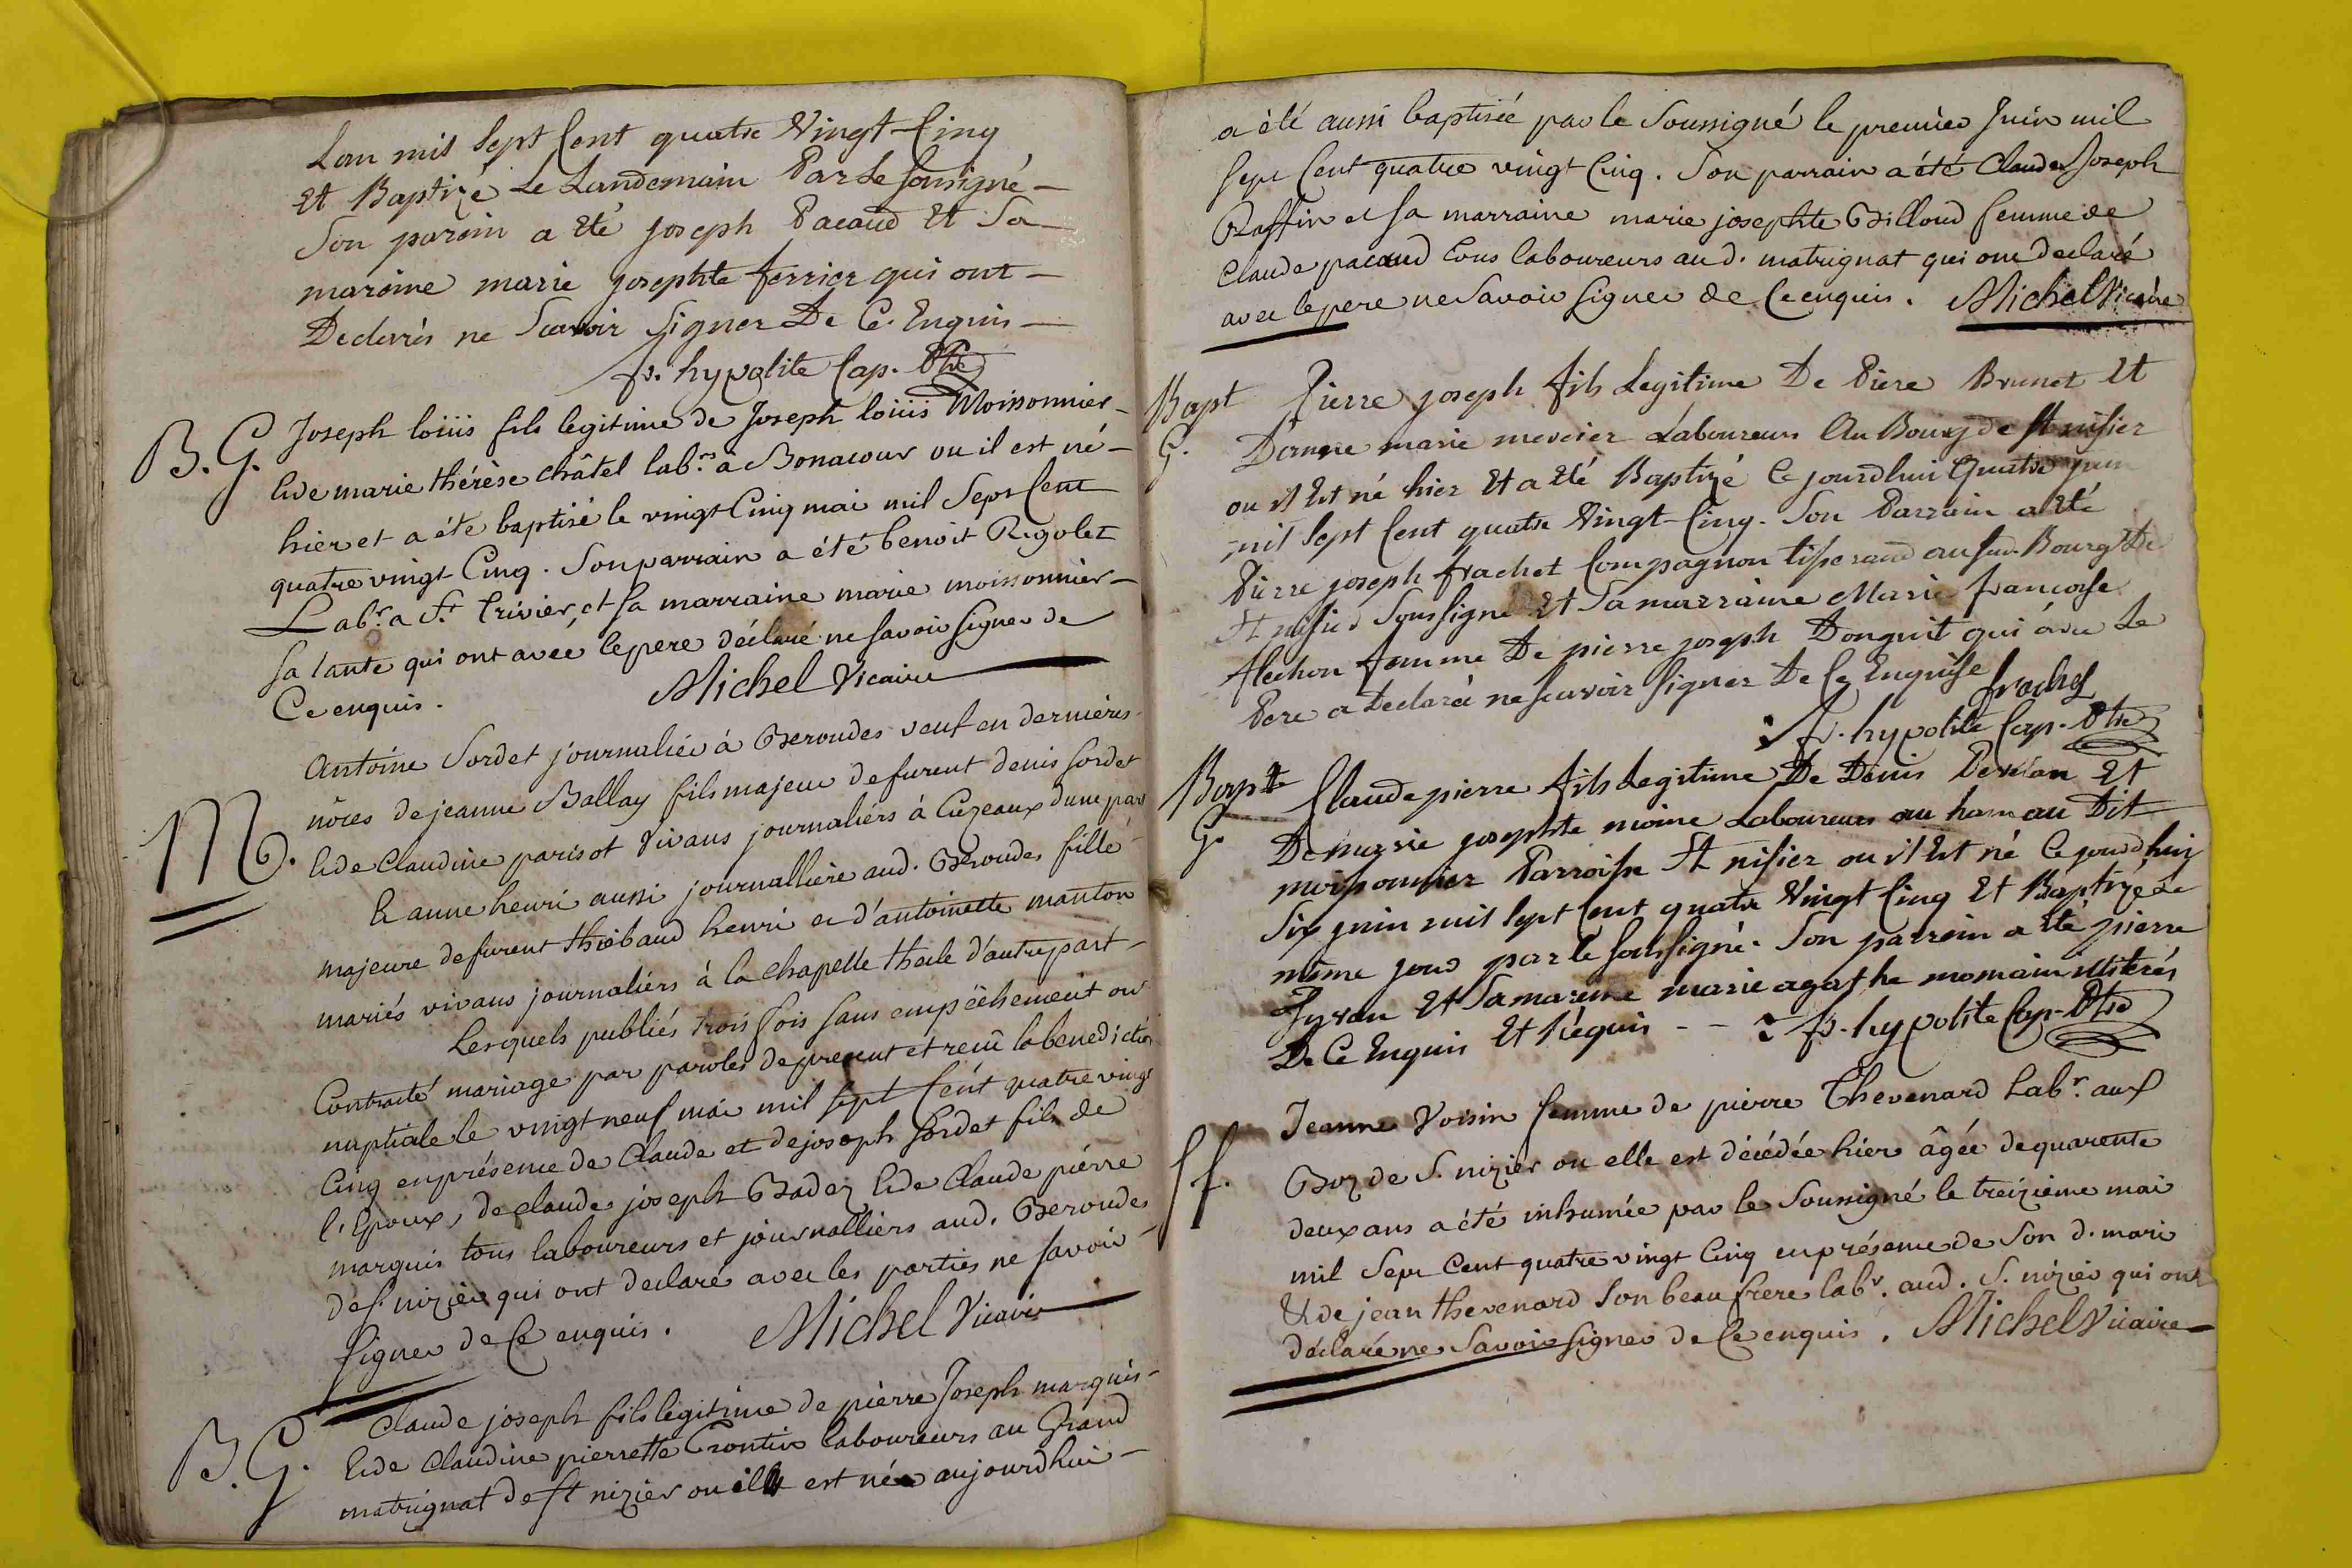 Lan mil Sept Cent quatre Vingt-Cinq
Et Baptizé Le Landemain Par Le Sousigné –
Son parain a Eté joseph Pacaud Et Sa –
maraine marie josephte ferrier qui ont –
Declarés ne Scavoir Signer De Ce. Enquis –
fr. hypolite Cap. Ptre
B. G. Joseph loüis fils legitime de Joseph loüis Moissonnier –
& de marie thérèse châtel lab.rs à Bonacour ou il est né –
hier et a été baptisé le vingt Cinq mai mil Sept Cent
quatre vingt Cinq. Son parrain a été benoit Rigolet
Lab.r a St. trivier, et sa marraine marie moissonnier –
sa tante qui ont avec le pere déclaré ne savoir signer de
Ce enquis. Michel Vicaire
M. Antoine Sordet journalier à Beroudes veuf en dernières
nôces de jeanne Ballay fils majeur de furent denis Sordet
& de Claudine parisot vivans journaliers à Cuzeaux d'une part
& anne henri aussi journalliere aud. Beroudes fille
majeure de furent thiebaud henri et d'antoinette manton
mariés vivans journaliers à la chapelle thecle d'autre part –
Lesquels publiés trois fois sans empêchement ont
Contracté mariage par paroles de present et recu la benediction
nuptiale le vingt neuf mai mil sept Cent quatre vingt
Cinq en présence de Claude et de joseph Sordet fils de
l'Epoux, de claude joseph Badez & de Claude pierre
marquis tous laboureurs et journalliers aud. Beroudes
de St. nizier qui ont declaré avec les parties ne savoir –
signer de Ce enquis. Michel Vicaire
B. G. Claude joseph fils legitime de pierre Joseph marquis –
& de Claudine pierrette Trontin laboureurs au Grand
matrignat de St nizier ou ill est né aujourdhui –
a été aussi baptisée par le Soussigné le premier Juin mil
Sept Cent quatre vingt Cinq. Son parrain a été Claude Joseph
Raffin et sa marraine marie josephte Billoud femme de
Claude pacaud tous laboureurs aud. matrignat qui ont declaré
avec le pere ne Savoir signer de Ce enquis. Michel Vicaire
Bapt Pierre joseph fils Legitime De Piere Brunet Et
G. D'anne marie mercier Laboureurs Au Bourg de St nisier
ou il Est né hier Et a Eté Baptizé Ce jourdhui Quatre juin
mil Sept Cent quatre Vingt-Cinq. Son Parrain a Eté
Pierre joseph frachet Compagnon tisserand au sud. Bourg De
St nisier Soussigné Et Sa marraine Marie francoise
flechon femme De pierre joseph Donguit qui avec Le
Pere a Declaré ne scavoir signer De Ce Enquise
frachet
fr. hypolite Cap. Ptre
Bapt Claude pierre fils Legitime De Denis Devélan Et
G. De marie josephte moine Laboureurs au hameau Dit
moissonnier Parroisse St nisier ou il Est né Ce jourdhuy
Six juin mil Sept Cent quatre Vingt Cinq Et Baptizé Le
même jour par le soussigné. Son parrain a Eté pierre
Et Sa mareine marie agathe illiterés
De Ce Enquis Et Réquis - - fr. hypolite Cap. Ptre
Sf. Jeanne Voisin femme de pierre Thevenard Lab.r aux
Boz de S. nizier ou elle est décédée hier âgée de quarente
deux ans a été inhumée par le Soussigné le treizieme mai
mil Sept Cent quatre vingt Cinq en présence de Son d. mari
& de jean thevenard Son beau frere lab.r aud. S. nizier qui ont
déclaré ne Savoir signer de Ce enquis. Michel Vicaire –